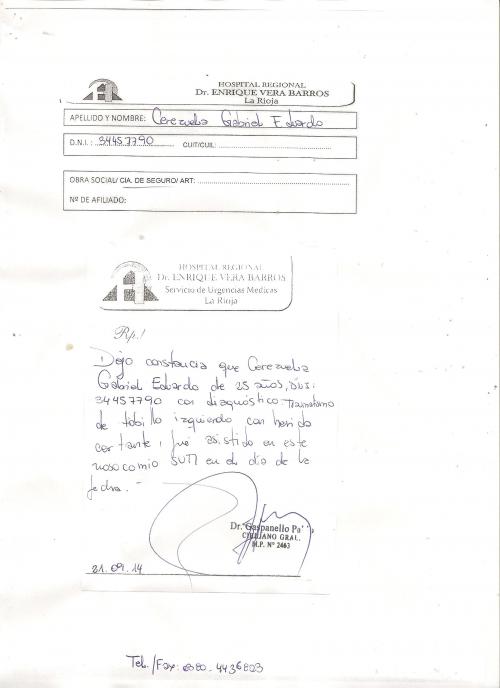 HOSPITAL REGIONAL
Dr. ENRIQUE VERA BARROS
La Rioja
APELLIDO Y NOMBRE: Cerezuela Gabriel Eduardo
D.N.I.: 34457790 CUIT/CUIL:
OBRA SOCIAL/ CIA. DE SEGURO/ ART:
Nº DE AFILIADO:
HOSPITAL REGIONAL
Dr. ENRIQUE VERA BARROS
Servicio de Urgencias Medicas
La Rioja
Rp./
Dejo constancia que Cerezuela
Gabriel Eduardo de 25 años, DNI:
34457790 con diagnóstico Traumatismo
de tobillo izquierdo con herida
cortante, fue asistido en este
nosocomio SUM en el día de la
fecha.-
Dr. Gaspanello Pa
CIRUJANO GRAL.
M.P. Nº 2463
21.09.14
Tel./Fax: 0380-4436803